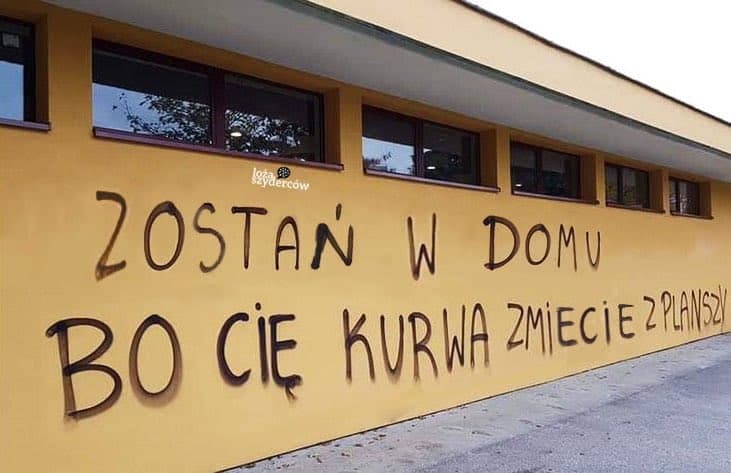 loża
szyderców
ZOSTAŃ W DOMU
BO CIĘ KURWA ZMIECIE Z PLANSZY